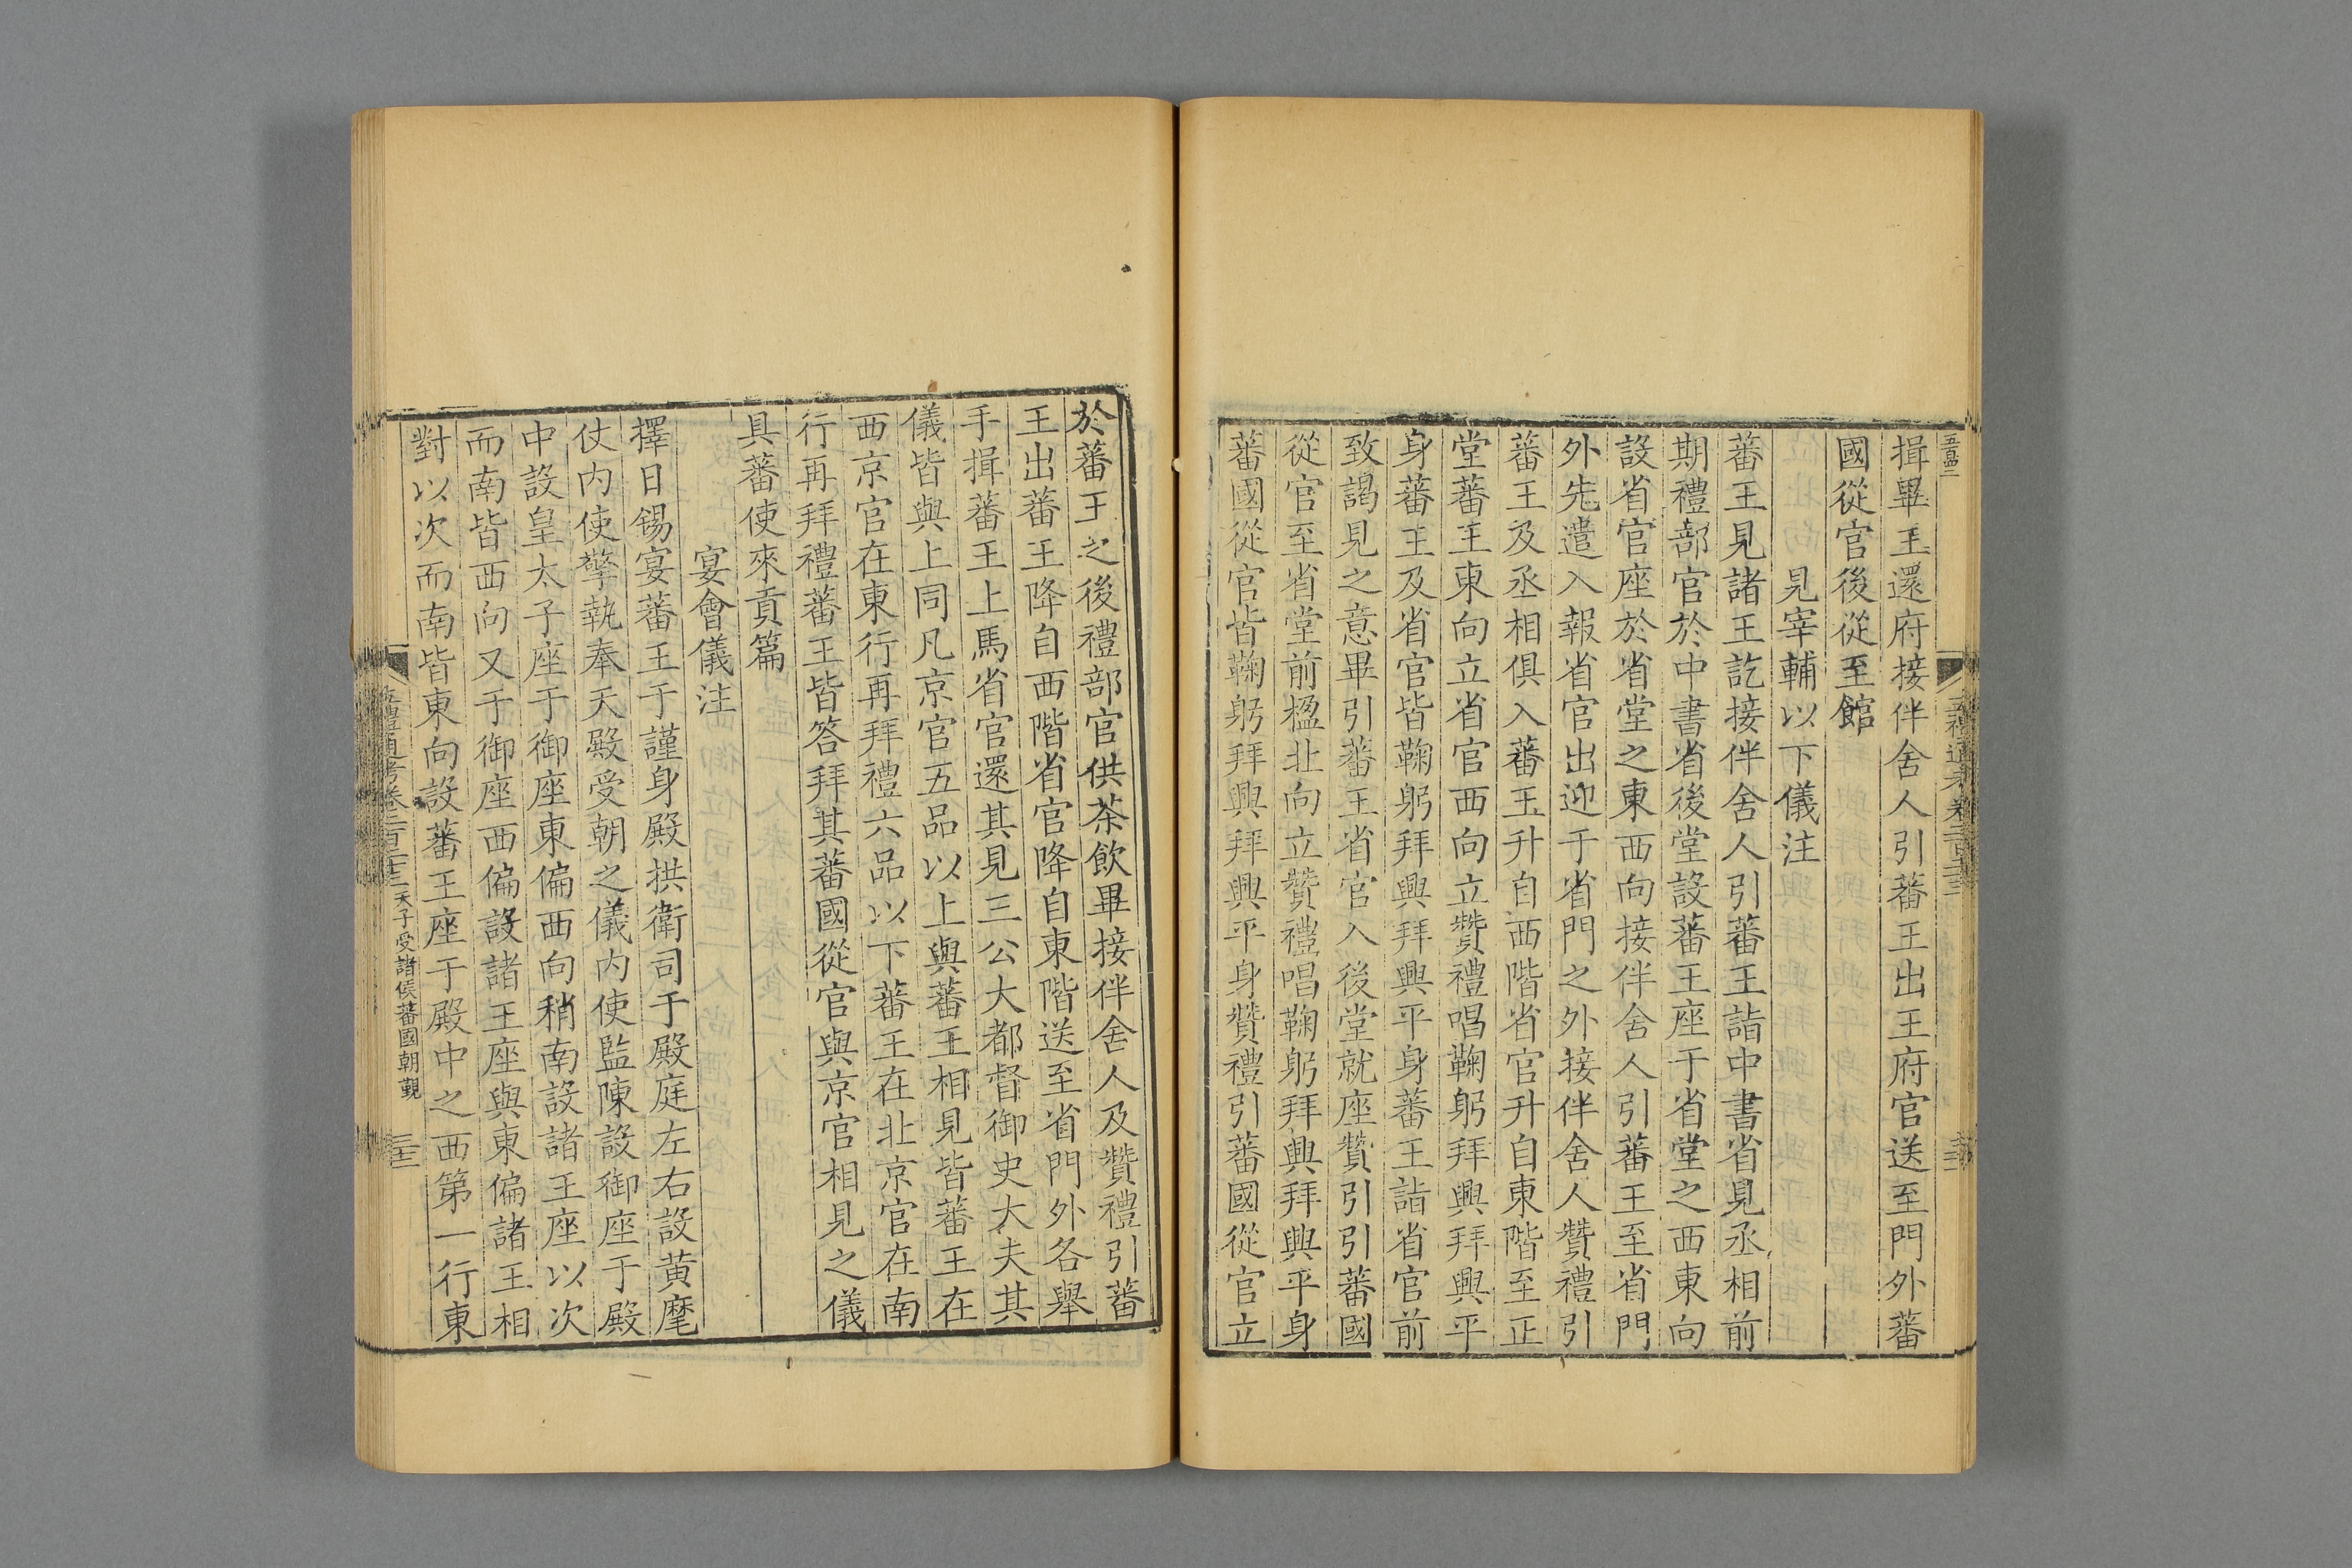 揖畢王還府接伴舍人引蕃王出王府官送至門外蕃
國從官後從至館
見宰輔以下儀注
蕃王見諸王訖接伴舍人引蕃王詣中書省見丞相前
期禮部官於中書省後堂設蕃王座于省堂之西東向
設省官座於省堂之東西向接伴舍人引蕃王至省門
外先遣入報省官出迎于省門之外接伴舍人贊禮引
蕃王及丞相俱入蕃王升自西階省官升自東階至正
堂蕃王東向立省官西向立贊禮唱鞠躬拜興拜興平
身蕃王及省官皆鞠躬拜興拜興平身蕃王詣省官前
致謁見之意畢引蕃王省官入後堂就座贊引引蕃國
從官至省堂前楹北向立贊禮唱鞠躬拜興拜興平身
蕃國從官皆鞠躬拜興拜興平身贊禮引蕃國從官立
於蕃王之後禮部官供茶飲畢接伴舍人及贊禮引蕃
王出蕃王降自西階省官降自東階送至省門外各舉
手揖蕃王上馬省官還其見三公大都督御史大夫其
儀皆與上同凡京官五品以上與蕃王相見皆蕃王在
西京官在東行再拜禮六品以下蕃王在北京官在南
行再拜禮蕃王皆答拜其蕃國從官與京官相見之儀
具蕃使來貢篇
宴會儀注
擇日錫宴蕃王于謹身殿拱衛司于殿庭左右設黃麾
仗内使擎執奉天殿受朝之儀内使監陳設御座于殿
中設皇太子座于御座東偏西向稍南設諸王座以次
而南皆西向又于御座西偏設諸王座與東偏諸王相
對以次而南皆東向設蕃王座于殿中之西第一行東
五禮通考卷二百二十二 天子受諸侯蕃國朝覲